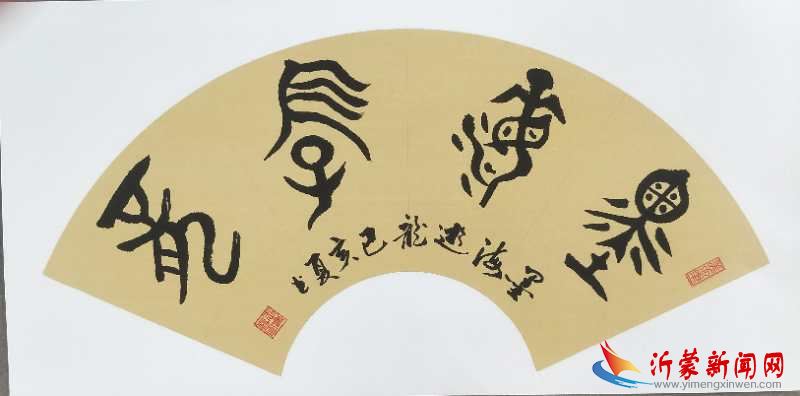 墨海游龍
墨海遊龍 己亥夏
沂蒙新闻网
www.yimengxinwen.com